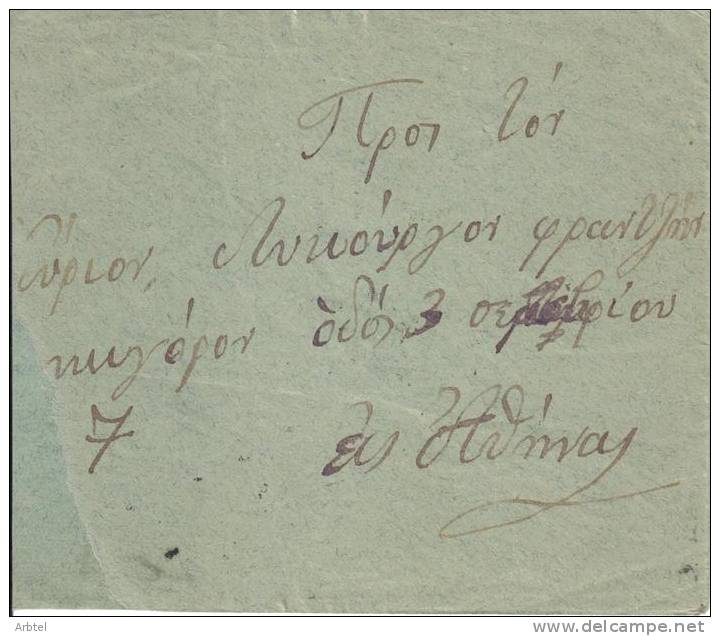 Προς τόν
Κύριον, Λυκούργον φραντζήν
κιγόρον ὁδός 3 σεπτεβρίου
7
εις Ἀθήνας
Arbtel
www.delcampe.net